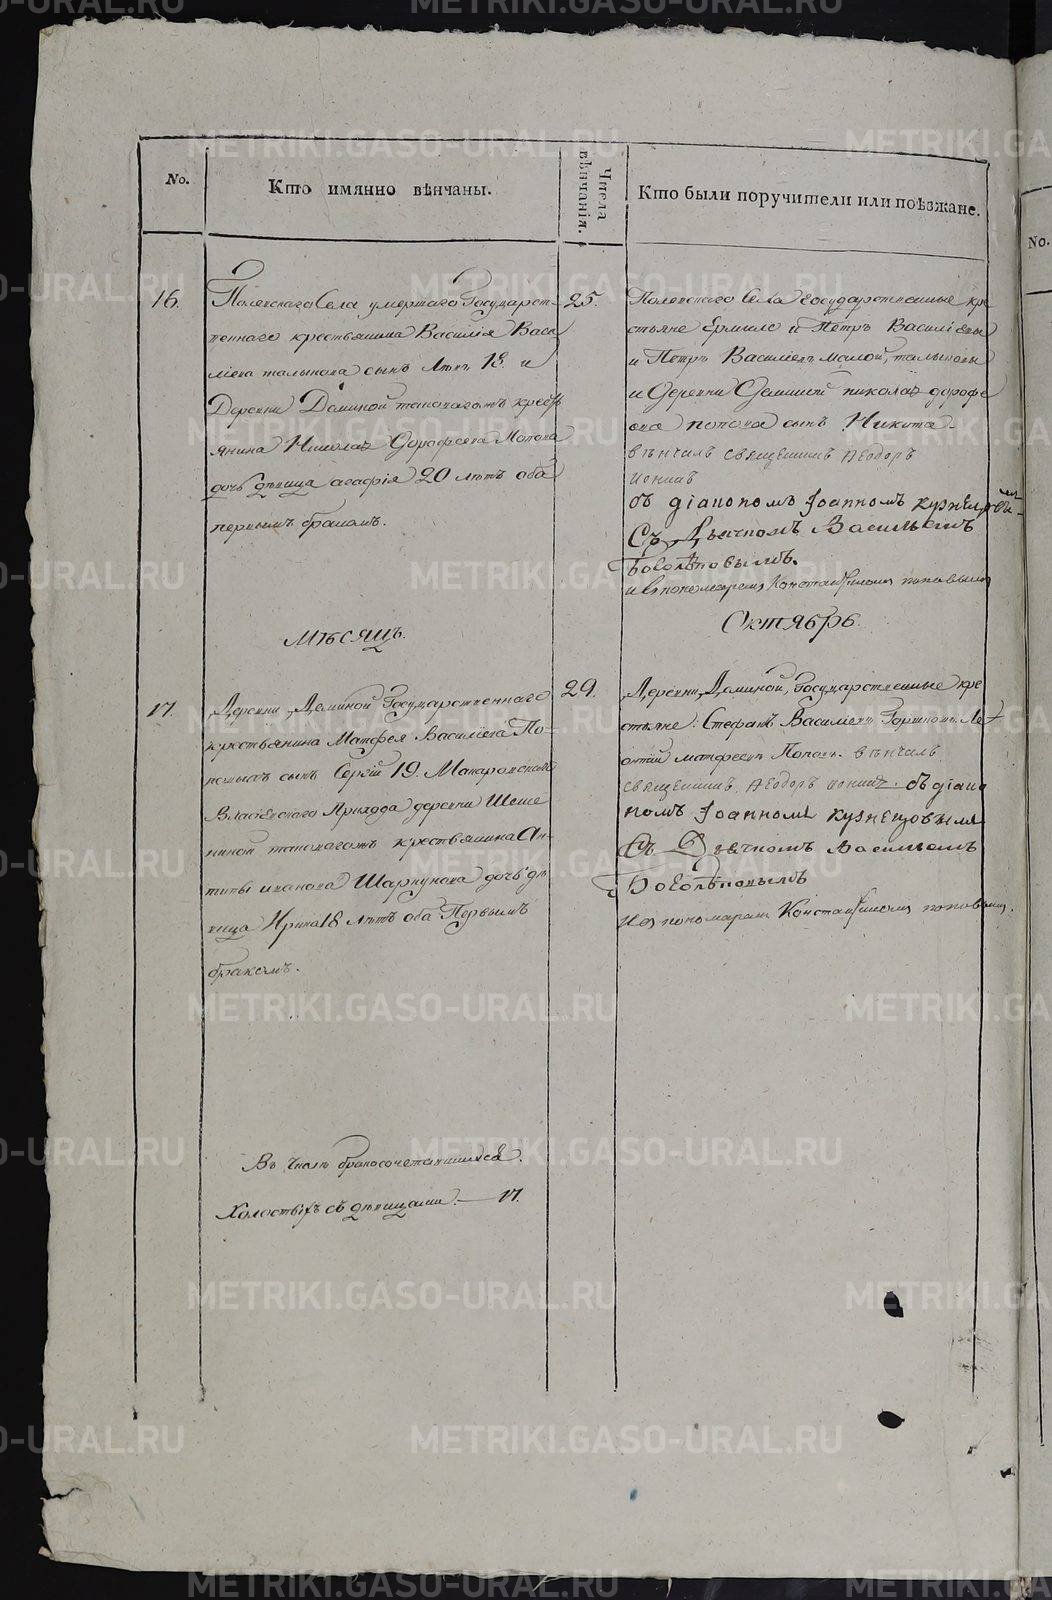 No.
Кто имянно вѣнчаны.
Числа вѣнчанія.
Кто были поручители или поѣзжане.
No.
16.
Полевскаго Села умершаго Государст-
веннаго крестьянина Василія Васи
лiева сынъ Лѣтъ 18. и
Деревни Деминой крестъ
янина Николая Дорофеева Попова
дочь дѣвица агафія 20 лѣтъ оба
первымъ бракомъ.
25.
Села государственные кре
стьяне Ермилъ и Петръ Василіевы
и Петръ Василіевъ малой,
и Деревни Деминой николая дорофе
ева попова сынъ Никита.
вѣнчалъ священникъ Ѳеодоръ
Iонинъ
съ діакономъ Іоанномъ кузнецовы-
мъ
Съ Дьячкомъ Васильемъ
Боголѣповымъ.
и с пономаремъ Константиномъ поповымъ
Мѣсяцъ.
Октябрь.
17.
Деревни Деминой Государственнаго
крестьянина Матфея Василіева По-
пова сынъ Сергій 19.
Власіевскаго Прихода деревни
крестьянина Ан-
типы Шаркунова дочь дѣ
вица Ирина 18 лѣтъ оба Первымъ
бракомъ.
29.
Деревни Деминой, Государственные кре
стьяне: Стефанъ Василіевъ Ле-
онтій матфеевъ Поповъ. вѣнчалъ
священникъ Ѳеодоръ Iонинъ. съ діако
номъ Іоанномъ кузнецовымъ
Съ Дьячкомъ Васильемъ
Боголѣповымъ
и с пономаремъ Константиномъ поповымъ.
Въ Числѣ бракосочетавшихся.
Холостыхъ съ дѣвицами. — 17.
METRIKI.GASO-URAL.RU